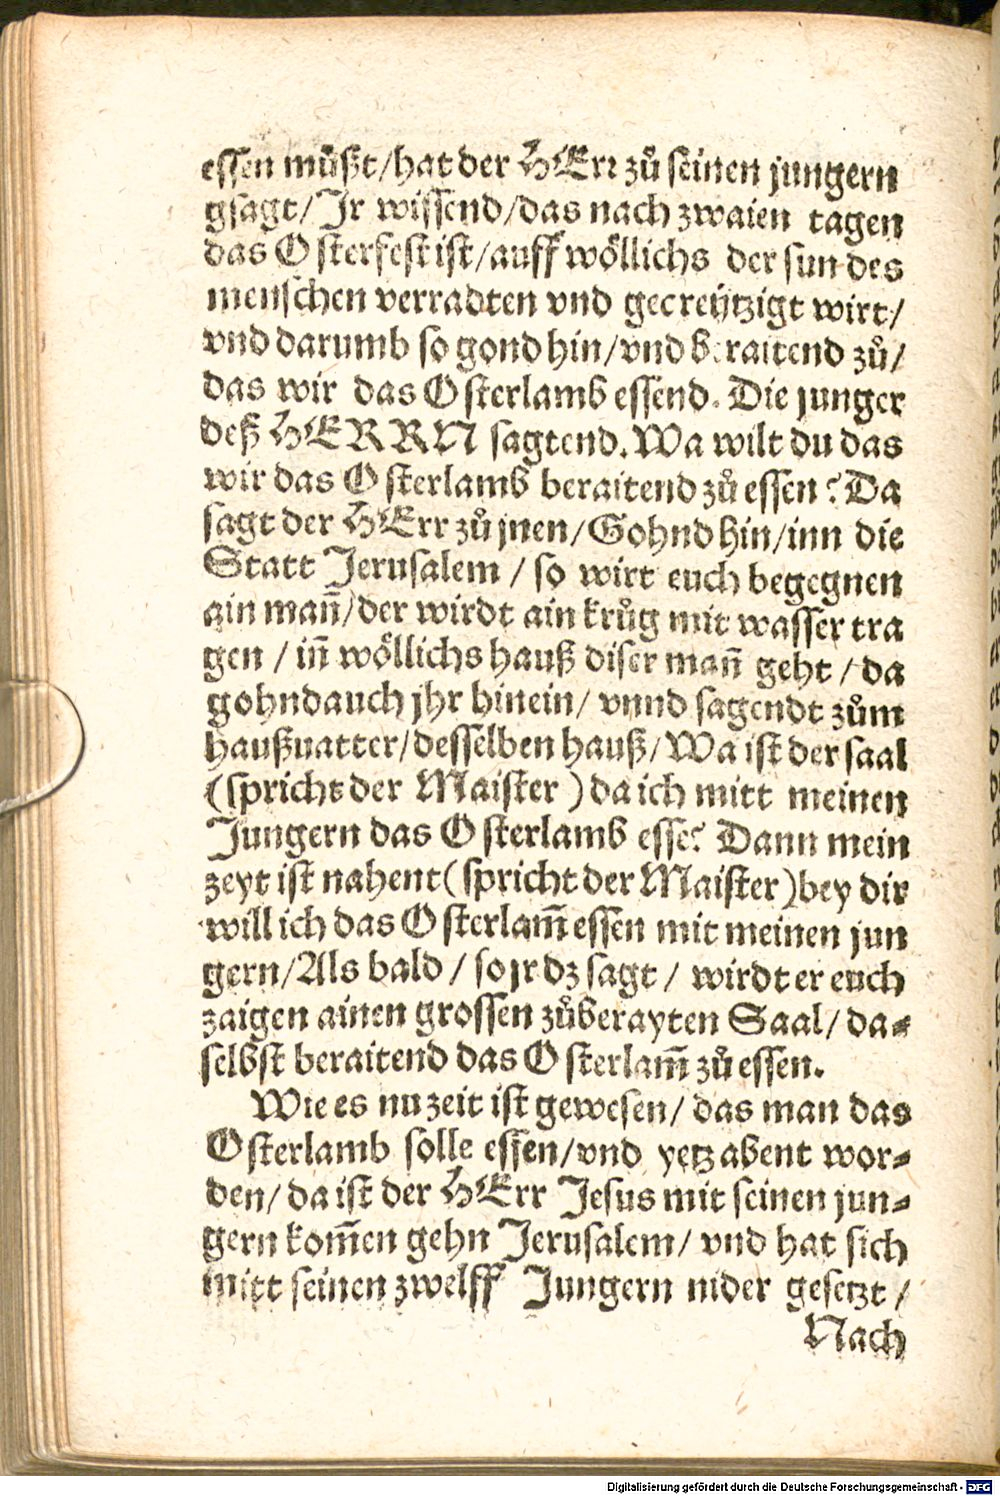 essen müßt/hat der HErr zů seinen jungern
gsagt/Ir wissend/das nach zwaien tagen
das Osterfest ist/auff wöllichs der sun des
menschen verradten vnd gecreützigt wirt/
vnd darumb so gond hin/vnd beraitend zů/
das wir das Osterlamb essend. Die junger
deß HERRN sagtend. Wa wilt du das
wir das Osterlamb beraitend zů essen? Da
sagt der HErr zů jnen/Gohnd hin/inn die
Statt Jerusalem / so wirt euch begegnen
ain man̄/der wirdt ain krůg mit wasser tra
gen / in̄ wöllichs hauß diser man̄ geht / da
gohnd auch jhr hinein/ vnnd sagendt zům
haußuatter/desselben hauß/Wa ist der saal
(spricht der Maister ) da ich mitt meinen
Jungern das Osterlamb esse? Dann mein
zeyt ist nahent(spricht der Maister)bey dir
will ich das Osterlam̄ essen mit meinen jun
gern/Als bald / so jr dz sagt / wirdt er euch
zaigen ainen grossen zůberayten Saal/ da=
selbst beraitend das Osterlam̄ zů essen.
Wie es nu zeit ist gewesen/ das man das
Osterlamb solle essen/vnd yetz abent wor=
den/ da ist der HErr Jesus mit seinen jun=
gern kom̄en gehn Jerusalem/ vnd hat sich
mitt seinen zwelff Jungern nider gesetzt /
Nach
Digitalisierung gefördert durch die Deutsche Forschungsgemeinschaft - DFG